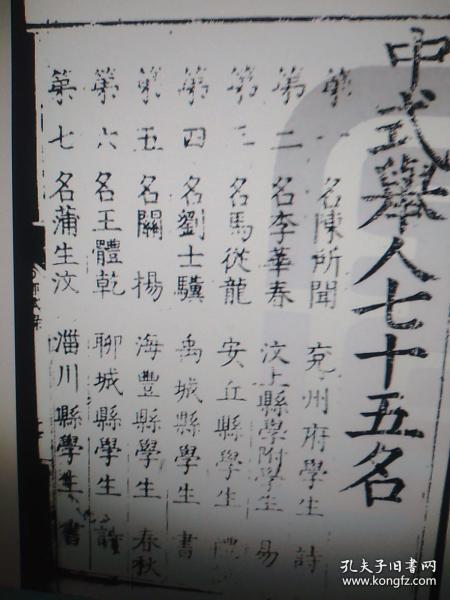 中式舉人七十五名
第一名陳所聞 兗州府學生 詩
第二名李華春 汶上縣學附學生 易
第三名馬從龍 安丘縣學生 禮
第四名劉士驥 禹城縣學生 書
第五名關揚 海豐縣學生 春秋
第六名王體乾 聊城縣學生 詩
第七名蒲生汶 淄川縣學生 書
孔夫子旧书网
www.kongfz.com